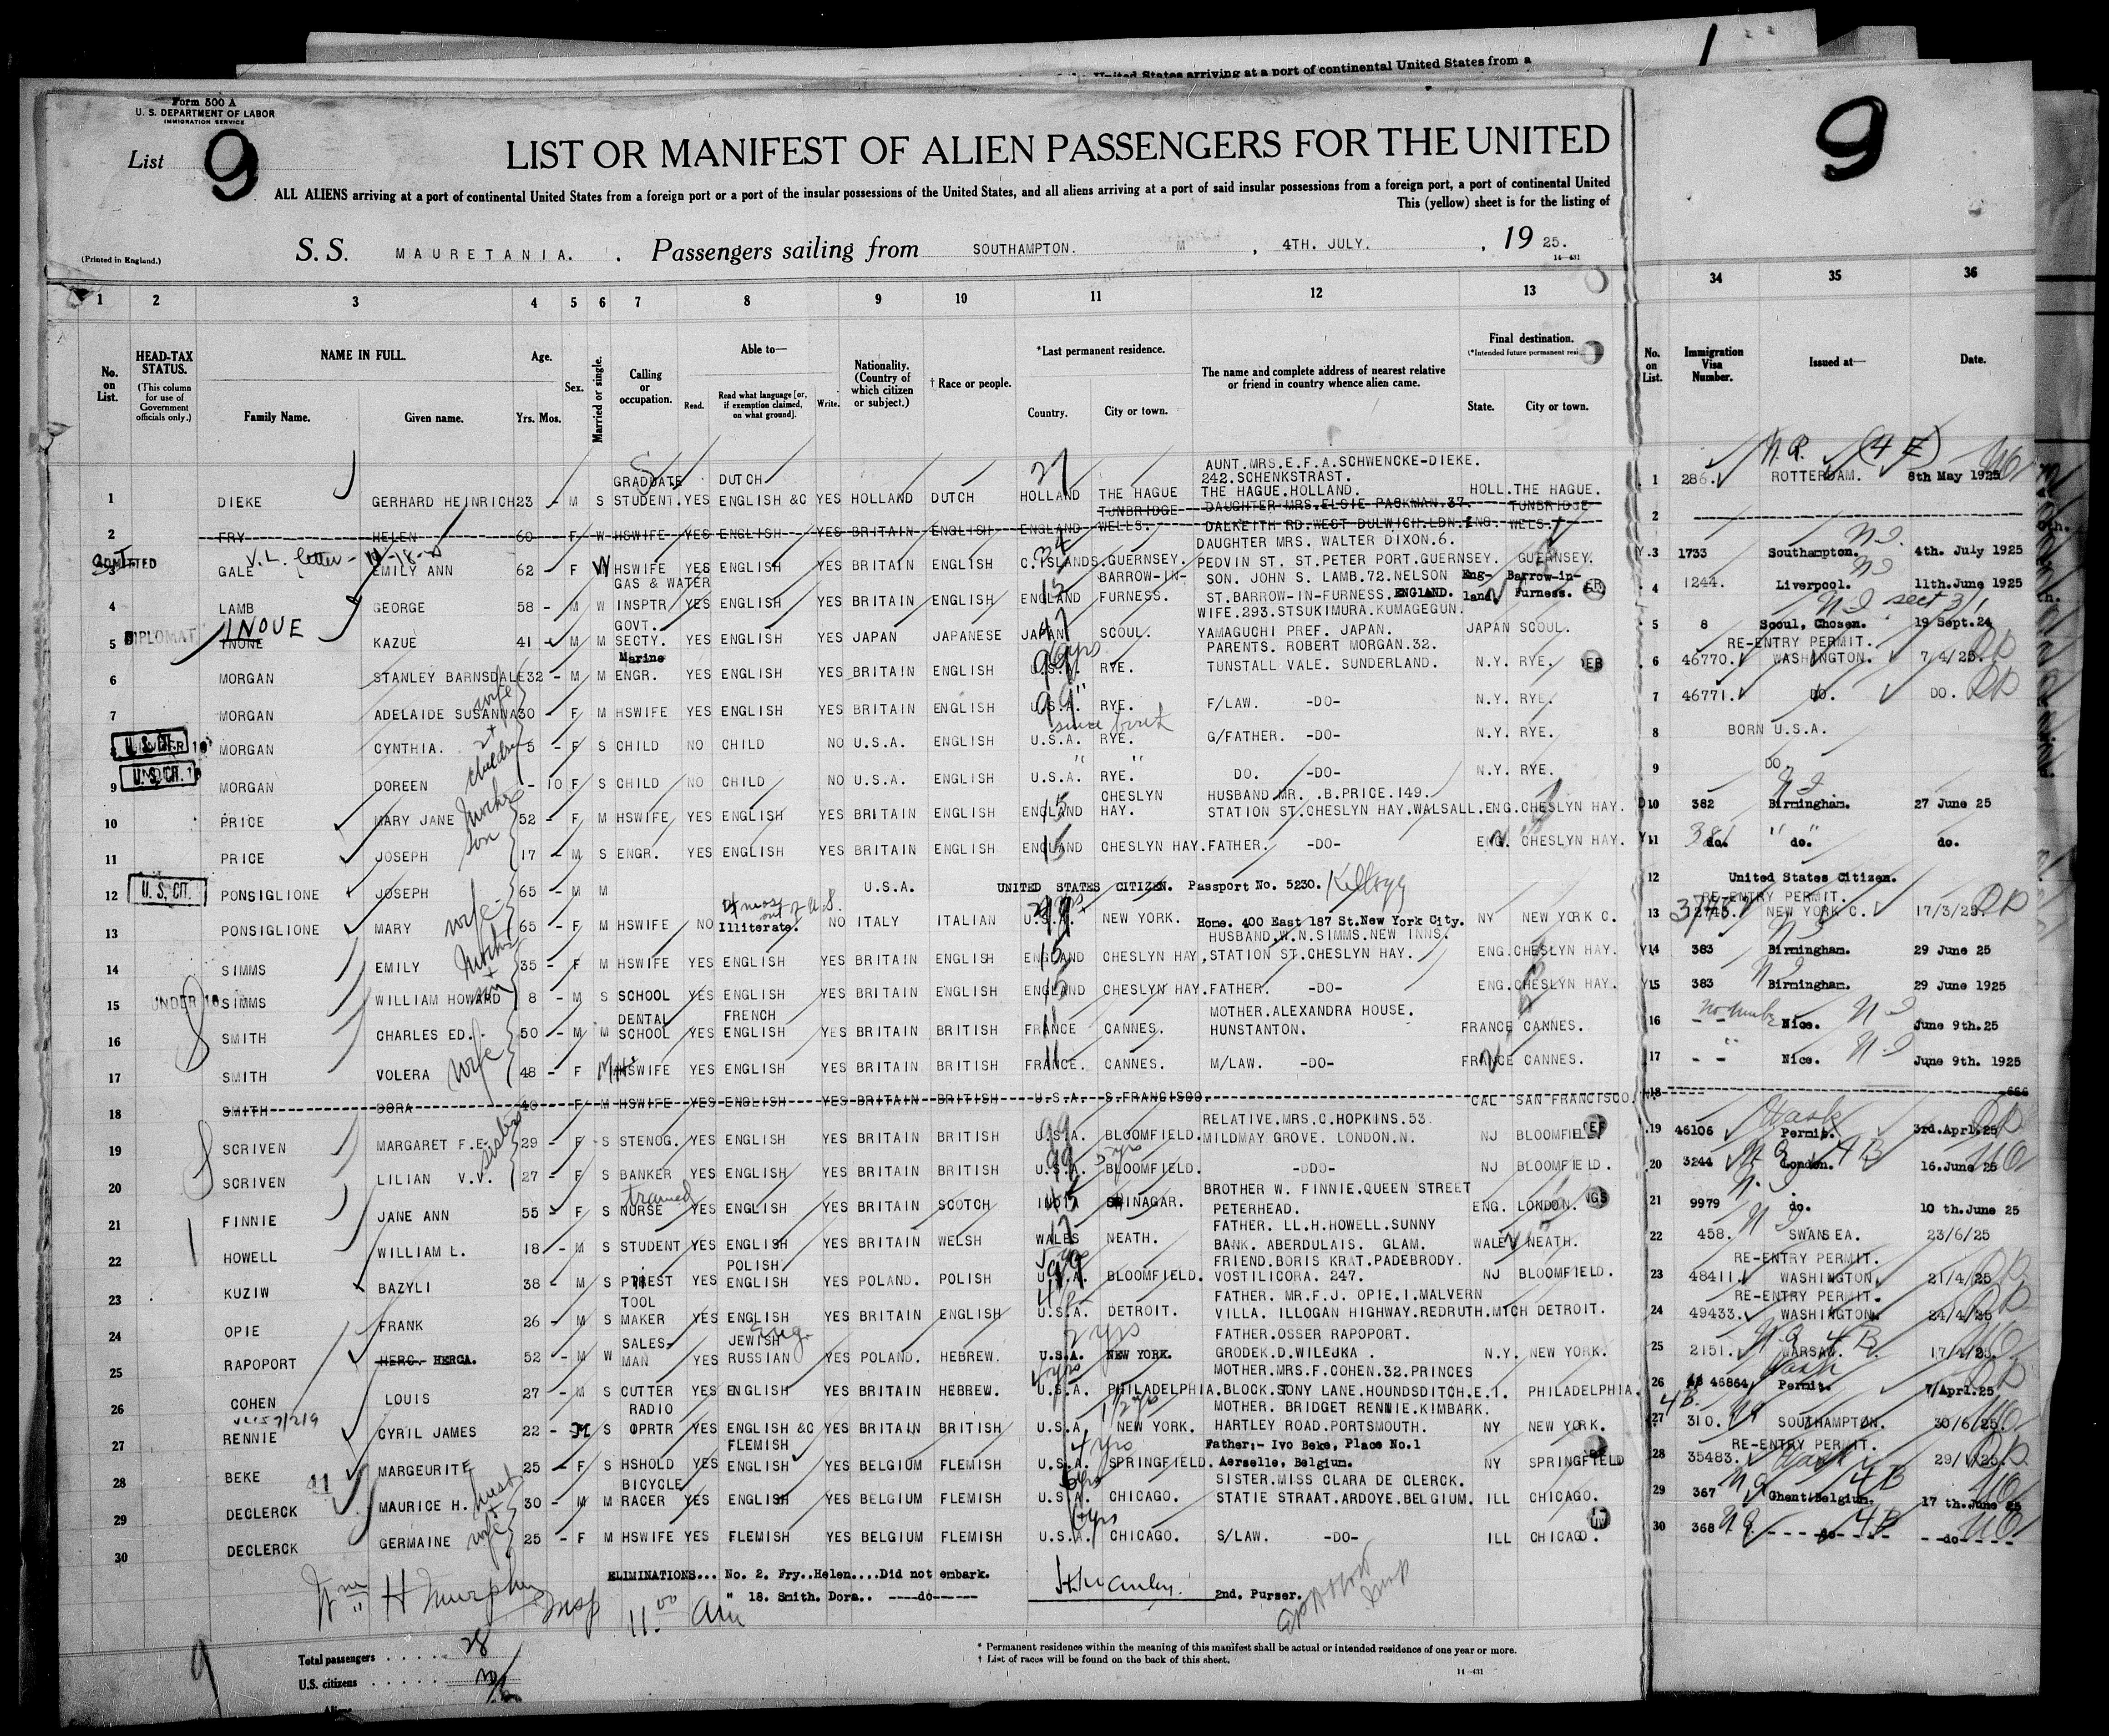 United States arriving at a port of continental United States from a
Form 500 A
U. S. DEPARTMENT OF LABOR
IMMIGRATION SERVICE
List 9
9
LIST OR MANIFEST OF ALIEN PASSENGERS FOR THE UNITED
ALL ALIENS arriving at a port of continental United States from a foreign port or a port of the insular possessions of the United States, and all aliens arriving at a port of said insular possessions from a foreign port, a port of continental United
This (yellow) sheet is for the listing of
(Printed in England.)
S. S. MAURETANIA. . Passengers sailing from SOUTHAMPTON. , 4TH. JULY. , 19 25.
14-431
1 2 3 4 5 6 7 8 9 10 11 12 13 34 35 36
No. on List.
HEAD-TAX STATUS.
(This column for use of Government officials only.)
NAME IN FULL.
Family Name. Given name.
Age.
Yrs. Mos.
Sex.
Married or single.
Calling or occupation.
Able to—
Read. Read what language [or, if exemption claimed, on what ground]. Write.
Nationality. (Country of which citizen or subject.)
† Race or people.
*Last permanent residence.
Country. City or town.
The name and complete address of nearest relative or friend in country whence alien came.
Final destination.
(*Intended future permanent resi
State. City or town.
No. on List.
Immigration Visa Number.
Issued at—
Date.
GRADUATE DUTCH AUNT.MRS.E.F.A.SCHWENCKE-DIEKE.
242.SCHENKSTRAST.
1 DIEKE GERHARD HEINRICH 23 - M S STUDENT. YES ENGLISH &C YES HOLLAND DUTCH HOLLAND THE HAGUE THE HAGUE.HOLLAND. HOLL. THE HAGUE. 1 286. ROTTERDAM. 8th May 1925
TUNBRIDGE DAUGHTER MRS.ELSIE PACKMAN.37. TUNBRIDGE
2 FRY HELEN 60 - F W HSWIFE YES ENGLISH YES BRITAIN ENGLISH ENGLAND WELLS. DALKEITH RD.WEST DULWICH.LDN. ENG. WELS. 2
V.L. letter DAUGHTER MRS. WALTER DIXON.6.
ADMITTED 3 GALE EMILY ANN 62 - F W HSWIFE YES ENGLISH YES BRITAIN ENGLISH C.ISLANDS. GUERNSEY. PEDVIN ST. ST.PETER PORT.GUERNSEY. GUERNSEY. 3 1733 Southampton. 4th. July 1925
GAS & WATER BARROW-IN- SON. JOHN S. LAMB.72.NELSON Eng- Barrow-in-
4 LAMB GEORGE 58 - M W INSPTR YES ENGLISH YES BRITAIN ENGLISH ENGLAND FURNESS. ST.BARROW-IN-FURNESS. ENGLAND. land. Furness. 4 1244. Liverpool. 11th.June 1925
INOUE GOVT. WIFE.293.STSUKIMURA.KUMAGEGUN.
DIPLOMAT 5 INONE KAZUE 41 - M M SECTY. YES ENGLISH YES JAPAN JAPANESE JAPAN SCOUL. YAMAGUCHI PREF. JAPAN. JAPAN SCOUL. 5 8 Seoul, Chosen. 19 Sept.24
Marine PARENTS. ROBERT MORGAN.32. RE-ENTRY PERMIT.
6 MORGAN STANLEY BARNSDALE 32 - M M ENGR. YES ENGLISH YES BRITAIN ENGLISH U.S.A. RYE. TUNSTALL VALE. SUNDERLAND. N.Y. RYE. 6 46770. WASHINGTON. 7/4/25.
7 MORGAN ADELAIDE SUSANNA 30 - F M HSWIFE YES ENGLISH YES BRITAIN ENGLISH U.S.A. RYE. F/LAW. -DO- N.Y. RYE. 7 46771. DO. DO.
since birth
U.S. CIT. 8 MORGAN CYNTHIA. 5 - F S CHILD NO CHILD NO U.S.A. ENGLISH U.S.A. RYE. G/FATHER. -DO- N.Y. RYE. 8 BORN U.S.A.
U.S. CIT. 9 MORGAN DOREEN - 10 F S CHILD NO CHILD NO U.S.A. ENGLISH U.S.A. RYE. DO. -DO- N.Y. RYE. 9 DO.
wife + 2 children
CHESLYN HUSBAND MR. .B.PRICE.149.
10 PRICE MARY JANE 52 - F M HSWIFE YES ENGLISH YES BRITAIN ENGLISH ENGLAND HAY. STATION ST.CHESLYN HAY.WALSALL. ENG. CHESLYN HAY. 10 382 Birmingham. 27 June 25
Mother son
11 PRICE JOSEPH 17 - M S ENGR. YES ENGLISH YES BRITAIN ENGLISH ENGLAND CHESLYN HAY. FATHER. -DO- ENG. CHESLYN HAY. 11 381 do. do. do.
U.S. CIT. 12 PONSIGLIONE JOSEPH 65 - M M U.S.A. UNITED STATES CITIZEN. Passport No. 5230. Kellogg 12 United States Citizen.
wife RE-ENTRY PERMIT.
13 PONSIGLIONE MARY 65 - F M HSWIFE NO Illiterate. NO ITALY ITALIAN U.S.A. NEW YORK. Home. 400 East 187 St.New York City. NY NEW YORK C. 13 NEW YORK C. 17/3/25.
HUSBAND.W.N.SIMMS.NEW INNS.
14 SIMMS EMILY 35 - F M HSWIFE YES ENGLISH YES BRITAIN ENGLISH ENGLAND CHESLYN HAY, STATION ST.CHESLYN HAY. ENG. CHESLYN HAY. 14 383 Birmingham. 29 June 25
Mother + son
15 UNDER 16 SIMMS WILLIAM HOWARD 8 - M S SCHOOL YES ENGLISH YES BRITAIN ENGLISH ENGLAND CHESLYN HAY. FATHER. -DO- ENG. CHESLYN HAY. 15 383 Birmingham. 29 June 1925
DENTAL FRENCH MOTHER.ALEXANDRA HOUSE.
16 SMITH CHARLES ED. 50 - M M SCHOOL YES ENGLISH YES BRITAIN BRITISH FRANCE CANNES. HUNSTANTON. FRANCE CANNES. 16 No number Nice. June 9th.25
wife
17 SMITH VOLERA 48 - F M HSWIFE YES ENGLISH YES BRITAIN BRITISH FRANCE. CANNES. M/LAW. -DO- FRANCE CANNES. 17 - - Nice. June 9th. 1925
18 SMITH DORA 40 - F M HSWIFE YES ENGLISH YES BRITAIN BRITISH U.S.A. S.FRANCISCO. CAL SAN FRANCISCO. 18 666
RELATIVE.MRS.C.HOPKINS.53.
19 SCRIVEN MARGARET F.E. 29 - F S STENOG. YES ENGLISH YES BRITAIN BRITISH U.S.A. BLOOMFIELD. MILDMAY GROVE. LONDON.N. NJ BLOOMFIELD 19 46106 Permit. 3rd.Apr1.25
sisters
20 SCRIVEN LILIAN V.V. 27 - F S BANKER YES ENGLISH YES BRITAIN BRITISH U.S.A. BLOOMFIELD. -DDO- NJ BLOOMFIELD. 20 3244 London. 16.June 25
trained BROTHER W. FINNIE.QUEEN STREET
21 FINNIE JANE ANN 55 - F S NURSE YES ENGLISH YES BRITAIN SCOTCH INDIA SRINAGAR. PETERHEAD. ENG. LONDON. 21 9979 do. 10 th.June 25
FATHER. LL.H.HOWELL.SUNNY
22 HOWELL WILLIAM L. 18 - M S STUDENT YES ENGLISH YES BRITAIN WELSH WALES NEATH. BANK. ABERDULAIS. GLAM. WALES NEATH. 22 458. SWANSEA. 23/6/25
POLISH FRIEND.BORIS KRAT.PADEBRODY. RE-ENTRY PERMIT.
23 KUZIW BAZYLI 38 - M S PRIEST YES ENGLISH YES POLAND. POLISH U.S.A. BLOOMFIELD. VOSTILICORA. 247. NJ BLOOMFIELD. 23 48411. WASHINGTON. 21/4/25
TOOL FATHER. MR.F.J. OPIE.I.MALVERN RE-ENTRY PERMIT.
24 OPIE FRANK 26 - M S MAKER YES ENGLISH YES BRITAIN ENGLISH U.S.A. DETROIT. VILLA. ILLOGAN HIGHWAY.REDRUTH. MICH DETROIT. 24 49433. WASHINGTON. 24/4/25
SALES- JEWISH Eng. 2 yrs FATHER.OSSER RAPOPORT.
25 RAPOPORT HERC. HERCA. 52 - M W MAN YES RUSSIAN YES POLAND. HEBREW. U.S.A. NEW YORK. GRODEK.D.WILEJKA . N.Y. NEW YORK. 25 2151. WARSAW. 17/4/25.
MOTHER.MRS.F.COHEN.32.PRINCES
26 COHEN LOUIS 27 - M S CUTTER YES ENGLISH YES BRITAIN HEBREW. U.S.A. PHILADELPHIA. BLOCK.STONY LANE.HOUNDSDITCH.E.I. PHILADELPHIA. 26 46864 Permit. 7/Apr1.25
RADIO MOTHER. BRIDGET RENNIE.KIMBARK. 4B.
27 RENNIE CYRIL JAMES 22 - M S OPRTR YES ENGLISH &C YES BRITAIN BRITISH U.S.A NEW YORK. HARTLEY ROAD.PORTSMOUTH. NY NEW YORK. 27 310. SOUTHAMPTON. 30/6/25.
FLEMISH 4 yrs Father:- Ivo Beke, Place No.1 RE-ENTRY PERMIT.
28 BEKE MARGEURITE 25 - F S HSHOLD YES ENGLISH YES BELGIUM FLEMISH U.S.A. SPRINGFIELD. Aerselle, Belgium. NY SPRINGFIELD 28 35483. 29/1/25.
BICYCLE 6 yrs SISTER.MISS CLARA DE CLERCK.
29 DECLERCK MAURICE H. 30 - M M RACER YES ENGLISH YES BELGIUM FLEMISH U.S.A. CHICAGO. STATIE STRAAT.ARDOYE.BELGIUM. ILL CHICAGO. 29 367 Ghent:Belgium. 17 th.June 25
husb + wife 6 yrs
30 DECLERCK GERMAINE 25 - F M HSWIFE YES FLEMISH YES BELGIUM FLEMISH U.S.A. CHICAGO. S/LAW. -DO- ILL CHICAGO. 30 368 - - - do- - - - - --do- - - -
ELIMINATIONS... No. 2. Fry..Helen....Did not embark.
" 18. Smith. Dora.. ----do------
2nd. Purser.
Wm H Murphy Insp 11.00 am
Total passengers . . . . . 28
U.S. citizens . . . . . .
Aliens
* Permanent residence within the meaning of this manifest shall be actual or intended residence of one year or more.
† List of races will be found on the back of this sheet.
14-431